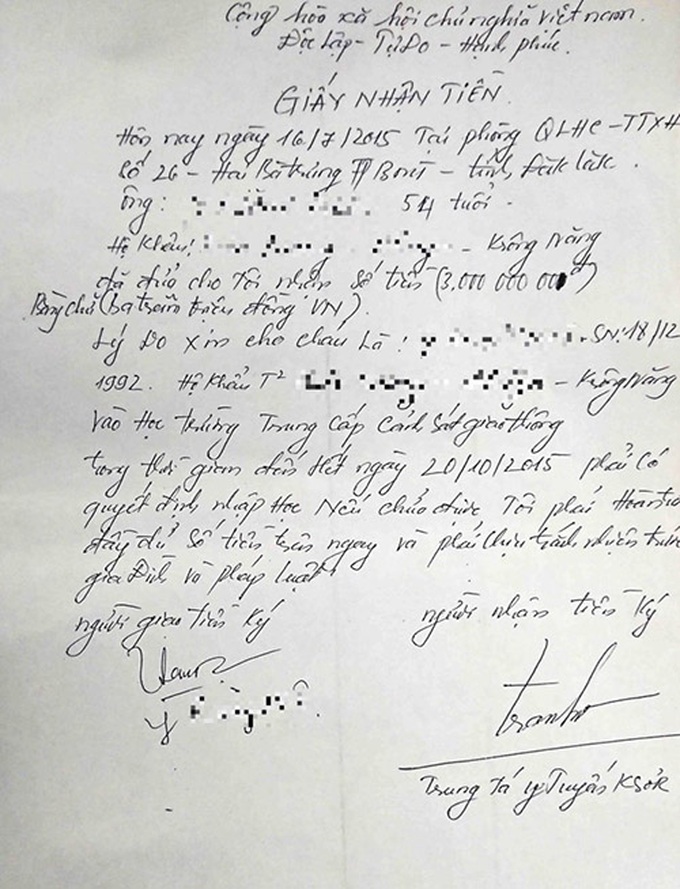 Cộng hòa xã hội chủ nghĩa việt nam.
Độc Lập - Tự Do - Hạnh phúc.
GIẤY NHẬN TIỀN
Hôm nay ngày 16/7/2015 Tại phòng QLHC-TTXH
Số 26 - Hai Bà trưng TP Bmt - tỉnh Đăk lăk.
Ông: 54 tuổi.
Hộ Khẩu: - Krông Năng
đã đưa cho Tôi nhận Số tiền (3.000 000 00đ)
Bằng chữ (ba trăm triệu đồng VN).
Lý Do xin cho cháu Là: SN: 18/12
1992. Hộ Khẩu T2 - Krông Năng
vào Học trường Trung Cấp Cảnh Sát giao thông
trong thời gian đến Hết ngày 20/10/2015 phải có
quyết định nhập Học Nếu chưa được Tôi phải Hoàn
đầy đủ Số tiền trên ngay và phải chịu trách nhiệm trước
gia Đình và pháp luật
người giao tiền Ký
người nhận tiền Ký
Y
Trung tá y Tuyến KSƠR